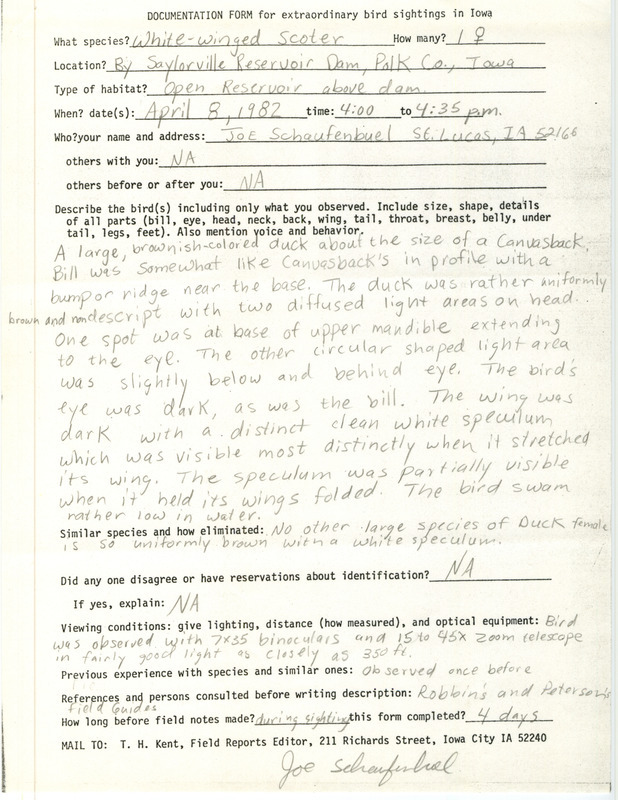 DOCUMENTATION FORM for extraordinary bird sightings in Iowa
What species? White-winged Scoter How many? 1 ♀
Location? By Saylorville Reservoir Dam, Polk Co., Iowa
Type of habitat? Open Reservoir above dam
When? date(s): April 8, 1982 time: 4:00 to 4:35 p.m.
Who? your name and address: Joe Schaufenbuel St. Lucas, IA 52166
others with you: NA
others before or after you: NA
Describe the bird(s) including only what you observed. Include size, shape, details
of all parts (bill, eye, head, neck, back, wing, tail, throat, breast, belly, under
tail, legs, feet). Also mention voice and behavior.
A large, brownish-colored duck about the size of a Canvasback.
Bill was somewhat like Canvasback's in profile with a
bump or ridge near the base. The duck was rather uniformly
brown and nondescript with two diffused light areas on head.
One spot was at base of upper mandible extending
to the eye. The other circular shaped light area
was slightly below and behind eye. The bird's
eye was dark, as was the bill. The wing was
dark with a distinct clean white speculum
which was visible most distinctly when it stretched
its wing. The speculum was partially visible
when it held its wings folded. The bird swam
rather low in water.
Similar species and how eliminated: No other large species of Duck female
is so uniformly brown with a white speculum.
Did any one disagree or have reservations about identification? NA
If yes, explain: NA
Viewing conditions: give lighting, distance (how measured), and optical equipment: Bird
was observed with 7x35 binoculars and 15 to 45x zoom telescope
in fairly good light as closely as 350 ft.
Previous experience with species and similar ones: observed once before
References and persons consulted before writing description: Robbin's and Peterson's
Field Guides
How long before field notes made? during sighting this form completed? 4 days
MAIL TO: T. H. Kent, Field Reports Editor, 211 Richards Street, Iowa City IA 52240
Joe Schaufenbuel